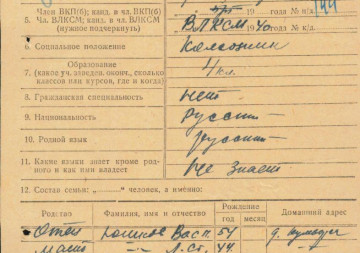 Член ВКП(б); канд. в чл. ВКП(б) 19 года № п/д.
5. Чл. ВЛКСМ; канд. в чл. ВЛКСМ ВЛКСМ 40
(нужное подчеркнуть) 19 года № к/д.
6. Социальное положение Колхозник
7. Образование 4 кл.
(какое уч. заведен. оконч., сколько
классов или курсов, где и когда)
8. Гражданская специальность нет
9. Национальность Русский
10. Родной язык Русский
11. Какие языки знает кроме род-
ного и как ими владеет не знает
12. Состав семьи: „——“ человек, а именно:
Родство Фамилия, имя и отчество Рождение Домашний адрес
год месяц
Отец Вас П. 54 д.
мать 44